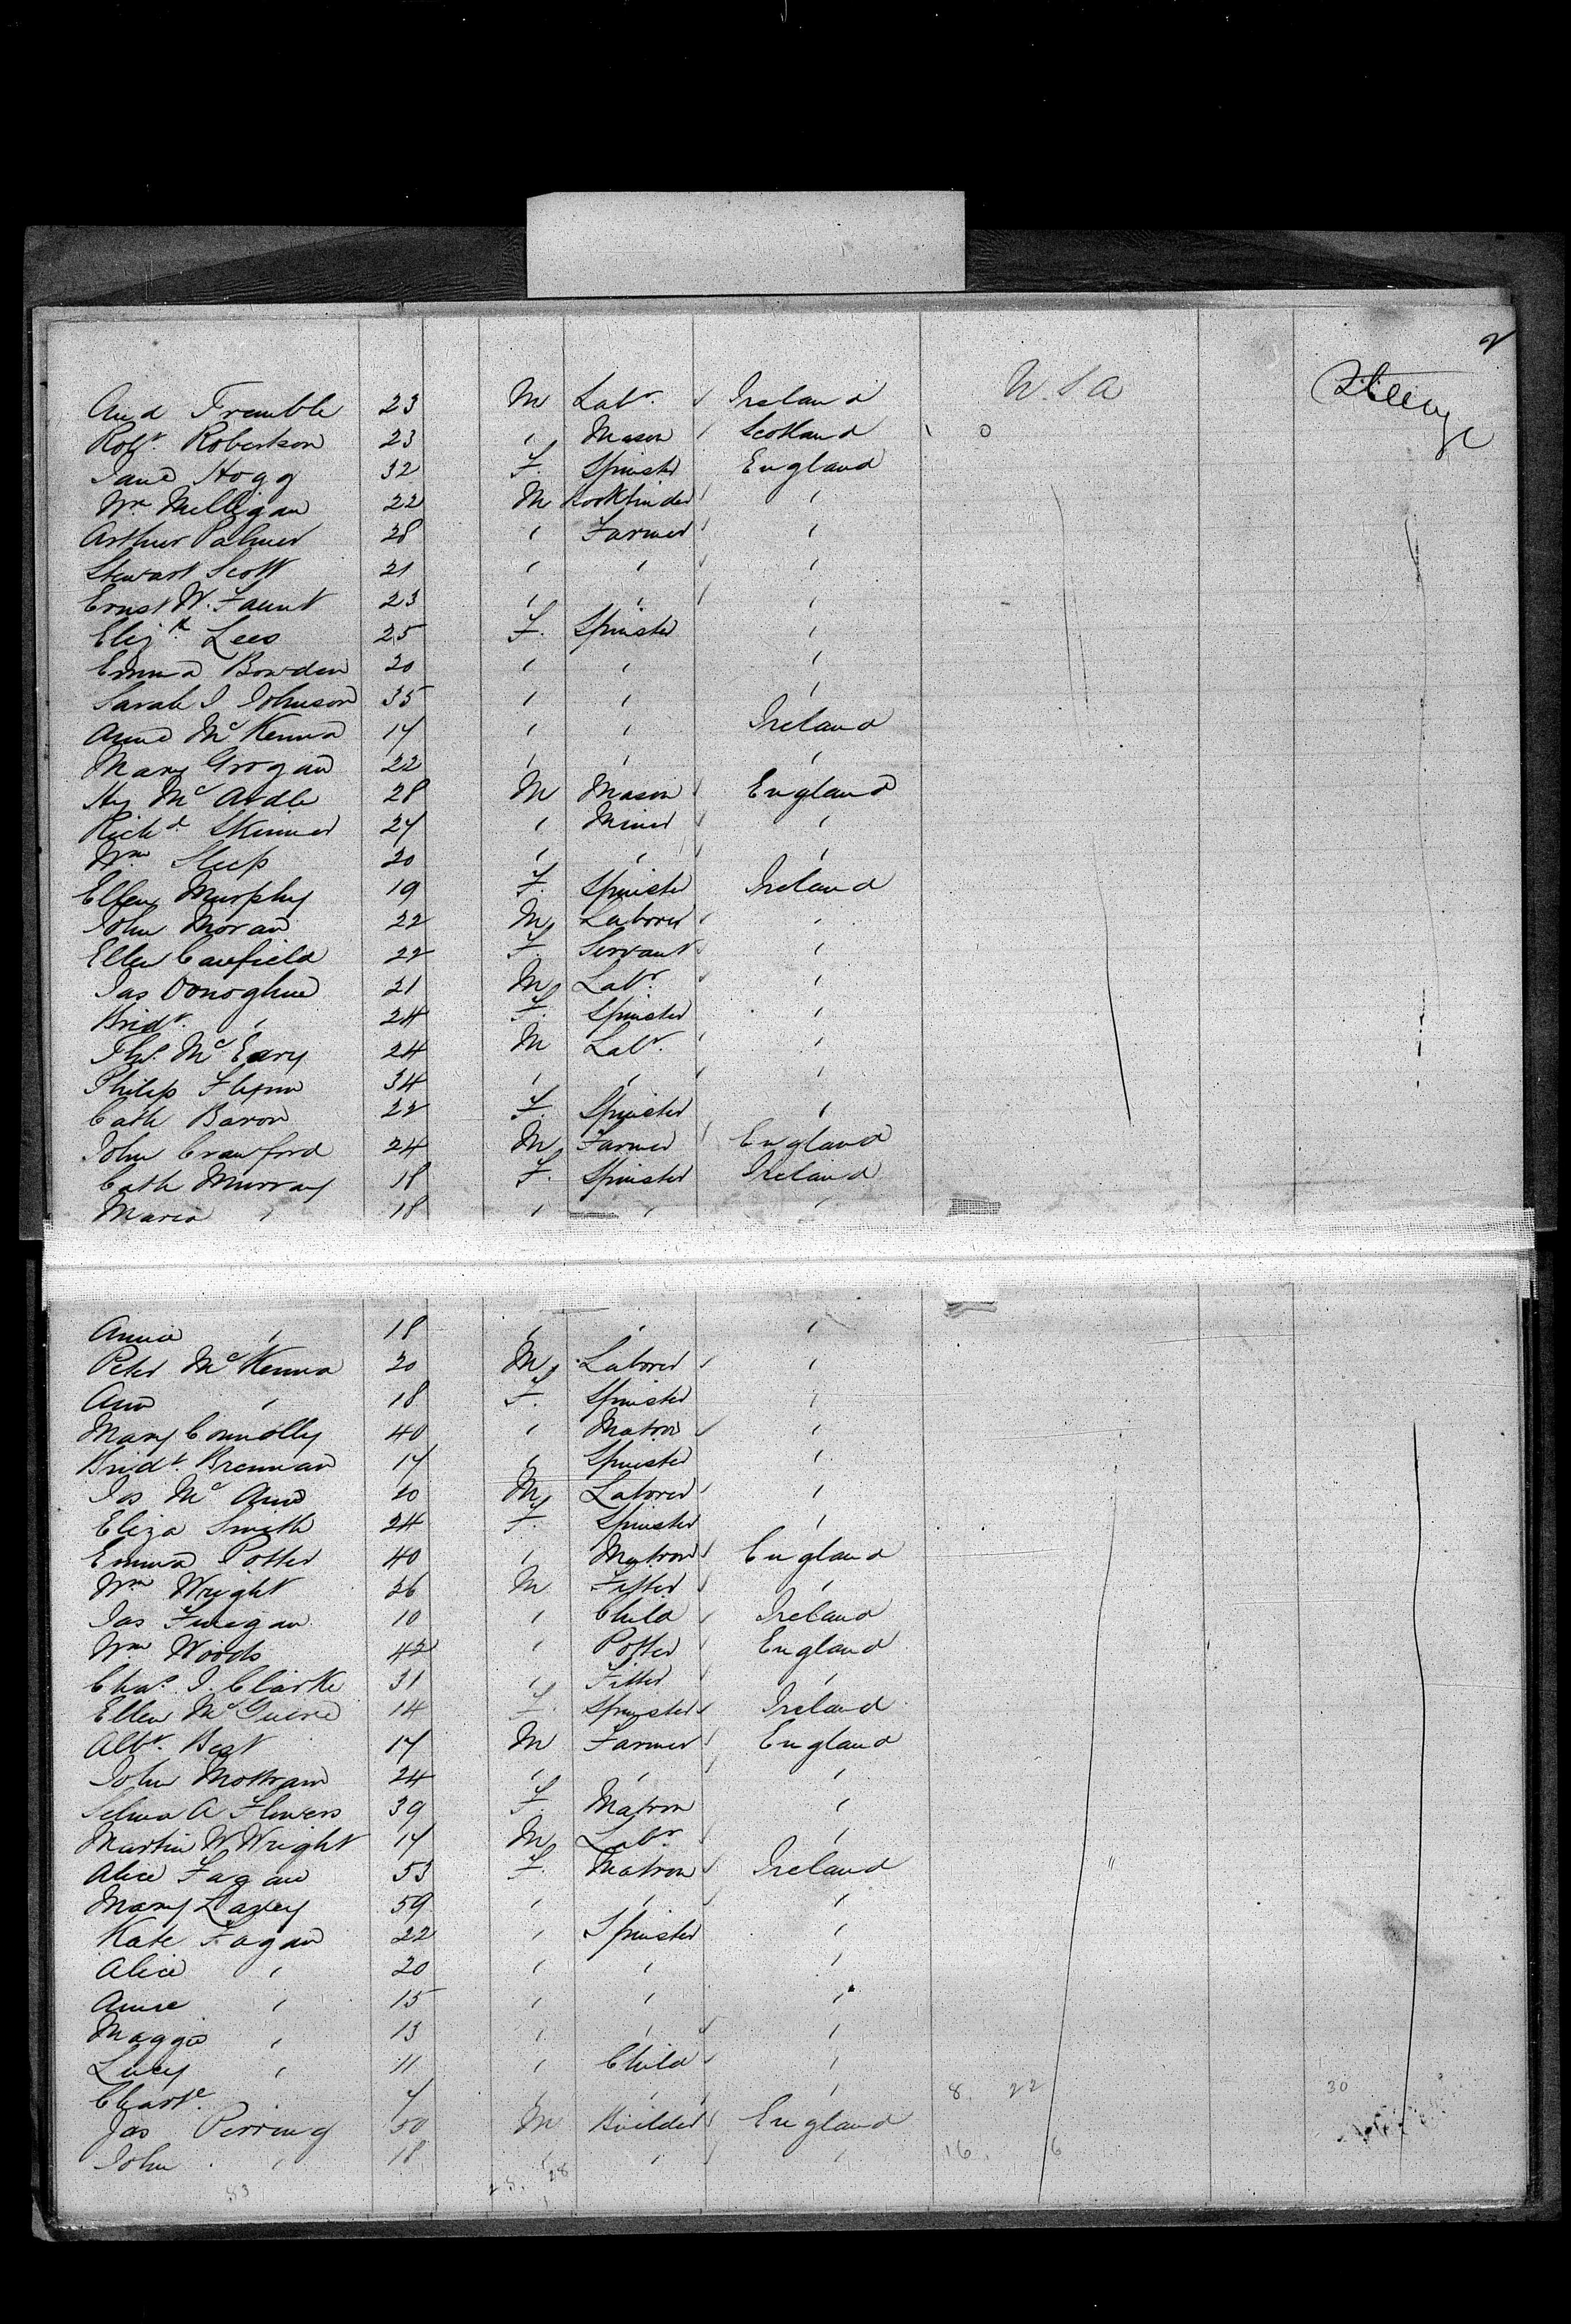 2
And Tremble 23 M Labr. Ireland U.S.A Steerage
Robt. Robertson 23 " Mason Scotland
Jane Hogg 32 F. Spinster England
Wm Milligan 22 M Bookbinder "
Arthur Palmer 28 " Farmer "
Stewart Scott 21 " " "
Ernst W. Faunt 23 " " "
Elizth Lees 25 F. Spinster "
Emma Bowden 20 " " "
Sarah J Johnson 35 " " "
Anne McKenna 17 " " Ireland
Mary Grogan 22 " " "
Hy McArdle 28 M Mason England
Richd. Skinner 27 " Miner "
Wm Sleep 20 " " "
Ellen Murphy 19 F. Spinster Ireland
John Moran 22 M Laborer "
Ellen Canfield 22 F Servant "
Jas Donoghue 21 M Labr. "
Bridt. " 24 F. Spinster "
Ths. McEvry 24 M Labr. "
Philip Flynn 34 " " "
Cath Baron 22 F. Spinster "
John Crawford 24 M Farmer England
Cath Murray 18 F. Spinster Ireland
Maria " 18 " " "
Annie " 18 " " "
Peter McKenna 20 M Laborer "
Ann " 18 F. Spinster "
Mary Connolly 40 " Matron "
Bridt. Brennan 17 " Spinster "
Jas McAnn 20 M Laborer "
Eliza Smith 24 F. Spinster "
Emma Potter 40 " Matron England
Wm Wright 26 M Fitter "
Jas Finegan 10 " Child Ireland
Wm Woods 42 " Potter England
Chas. J. Clarke 31 " Fitter "
Ellen McGuire 14 F. Spinster Ireland
Albt. Best 17 M Farmer England
John Mottram 24 " " "
Selina A Flowers 39 F. Matron "
Martin W Wright 17 M Labr "
Alice Fagan 53 F. Matron Ireland
Mary Lavey 59 " " "
Kate Fagan 22 " Spinster "
Alice " 20 " " "
Annie " 15 " " "
Maggie " 13 " " "
Lucy " 11 " Child "
Chare. 7 " " " 8. 22 30
Jas Perring 50 M Builder England
John " 18 " " " 16. 6
53 25. 28